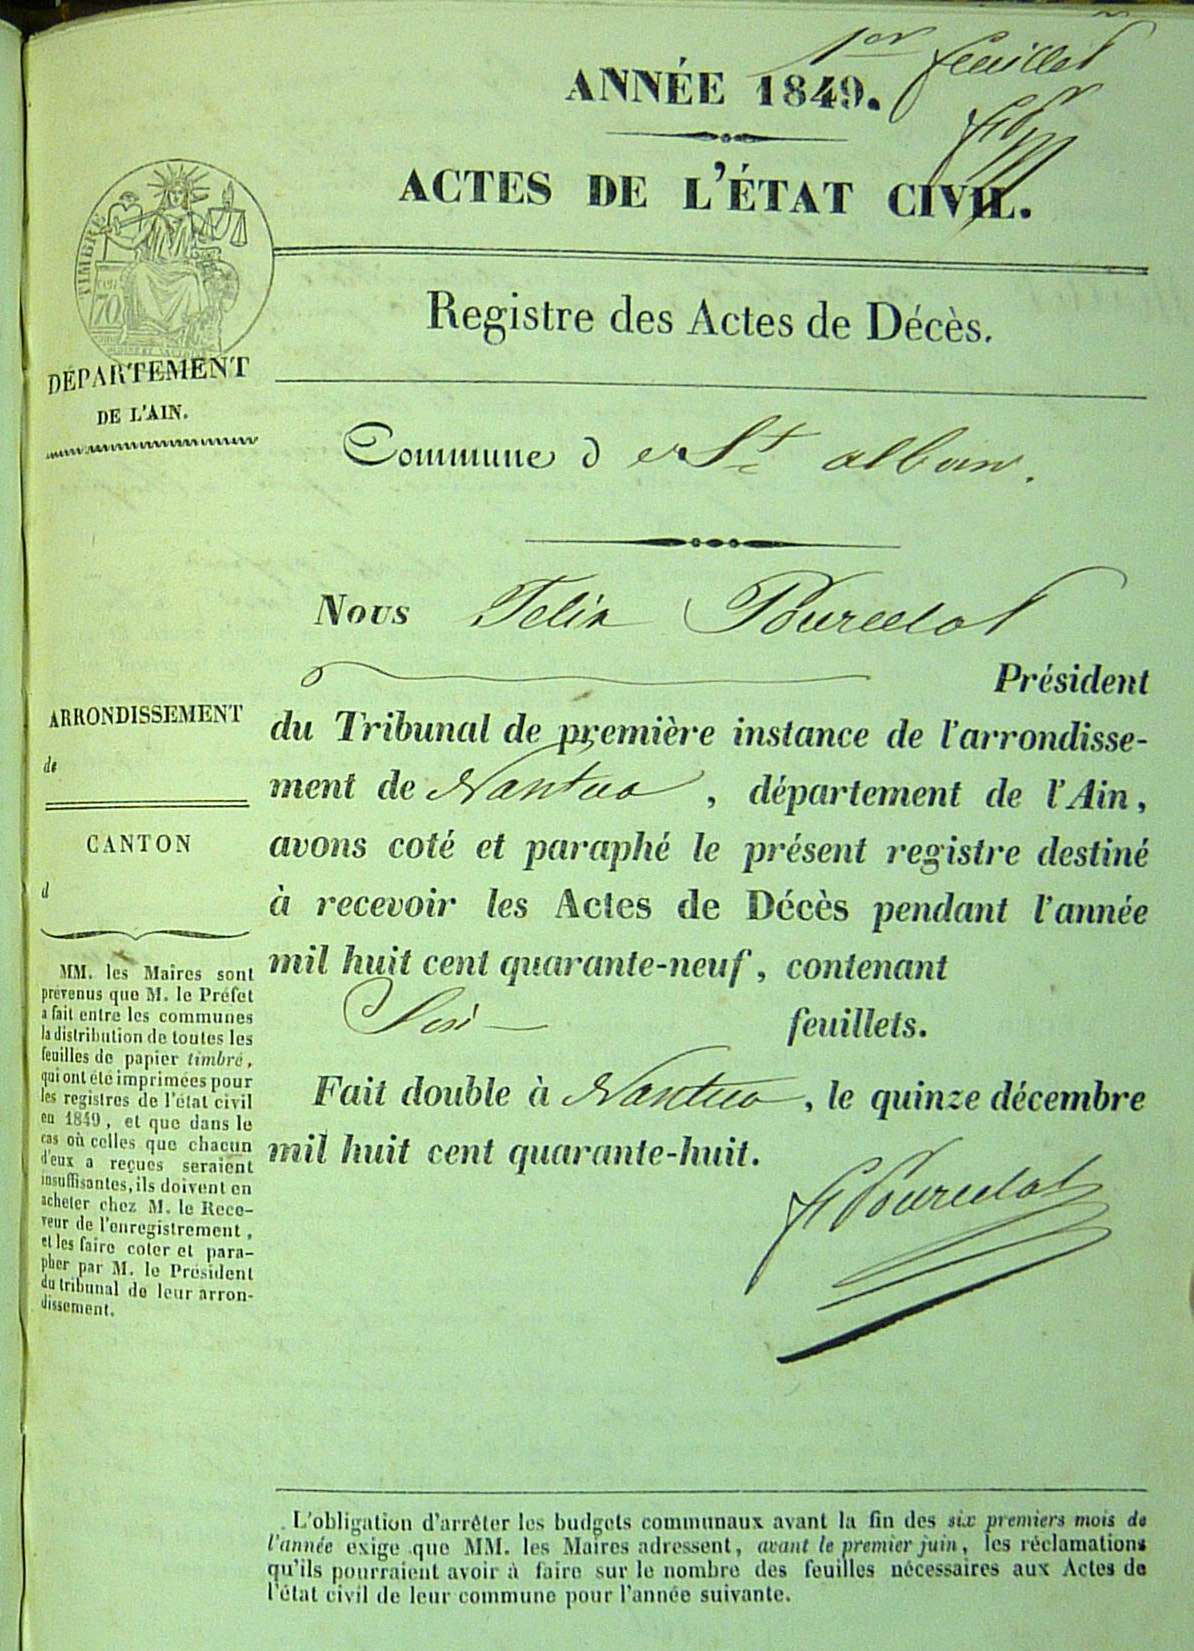 1er feuillet
ANNÉE 1849.
ACTES DE L'ÉTAT CIVIL.
TIMBRE
70
Registre des Actes de Décès.
DÉPARTEMENT
DE L'AIN.
Commune d e St alban.
Nous Felix Pourcelot
Président
du Tribunal de première instance de l'arrondisse-
ment de Nantua, département de l'Ain,
avons coté et paraphé le présent registre destiné
à recevoir les Actes de Décès pendant l'année
mil huit cent quarante-neuf, contenant
Six feuillets.
Fait double à Nantua, le quinze décembre
mil huit cent quarante-huit.
F Pourcelot
ARRONDISSEMENT
de
CANTON
d
MM. les Maires sont
prévenus que M. le Préfet
a fait entre les communes
la distribution de toutes les
feuilles de papier timbré,
qui ont été imprimées pour
les registres de l'état civil
en 1849, et que dans le
cas où celles que chacun
d'eux a reçues seraient
insuffisantes, ils doivent en
acheter chez M. le Rece-
veur de l'enregistrement,
et les faire coter et para-
pher par M. le Président
du tribunal de leur arron-
dissement.
L'obligation d'arrêter les budgets communaux avant la fin des six premiers mois de
l'année exige que MM. les Maires adressent, avant le premier juin, les réclamations
qu'ils pourraient avoir à faire sur le nombre des feuilles nécessaires aux Actes de
l'état civil de leur commune pour l'année suivante.